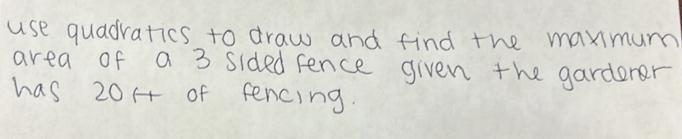 use quadratics to draw and find the maximum
area of a 3 sided fence given the garderer
has 20 ft of fencing.